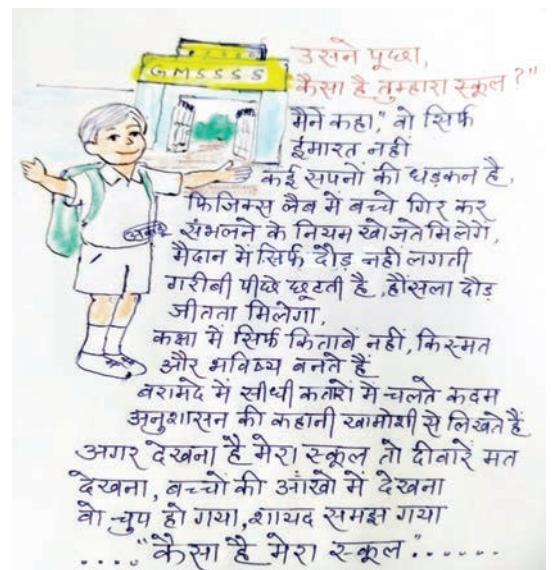 GMSSSS
उसने पूछा,
कैसा है तुम्हारा स्कूल ?"
मैंने कहा," वो सिर्फ
ईमारत नहीं
कई सपनों की धड़कन है,
फिजिक्स लैब में बच्चे गिर कर
संभलने के नियम खोजते मिलेंगे,
मैदान में सिर्फ दौड़ नहीं लगती
गरीबी पीछे छूटती है, हौंसला दौड़
जीतता मिलेगा,
कक्षा में सिर्फ किताबें नहीं, किस्मत
और भविष्य बनते हैं
बरामदे में सीधी कतारों में चलते कदम
अनुशासन की कहानी खामोशी से लिखते हैं
अगर देखना है मेरा स्कूल तो दीवारें मत
देखना, बच्चों की आंखों में देखना
वो चुप हो गया, शायद समझ गया
...."कैसा है मेरा स्कूल"......